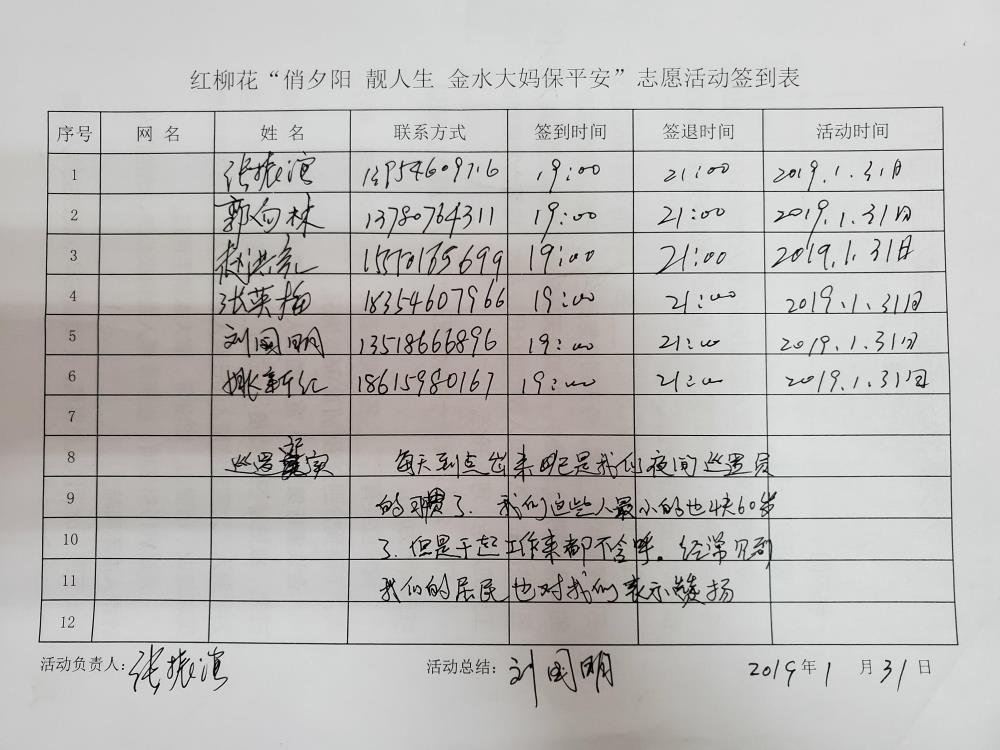 红柳花“俏夕阳 靓人生 金水大妈保平安”志愿活动签到表
序号 网 名 姓 名 联系方式 签到时间 签退时间 活动时间
1 张振滨 13954609716 19:00 21:00 2019.1.31日
2 郭向林 13780764311 19:00 21:00 2019.1.31日
3 赵洪亮 15570165699 19:00 21:00 2019.1.31日
4 张英梅 18354607966 19:00 21:00 2019.1.31日
5 刘国明 13518666896 19:00 21:00 2019.1.31日
6 姚新红 18615980167 19:00 21:00 2019.1.31日
7
8 巡逻记实 每天到点出来已是我们夜间巡逻员
9 的习惯了.我们这些人最小的也快60岁
10 了.但是干起工作来都不含呼。经常见到
11 我们的居民也对我们表示赞扬
12
活动负责人:张振滨 活动总结:刘国明 2019年1月31日